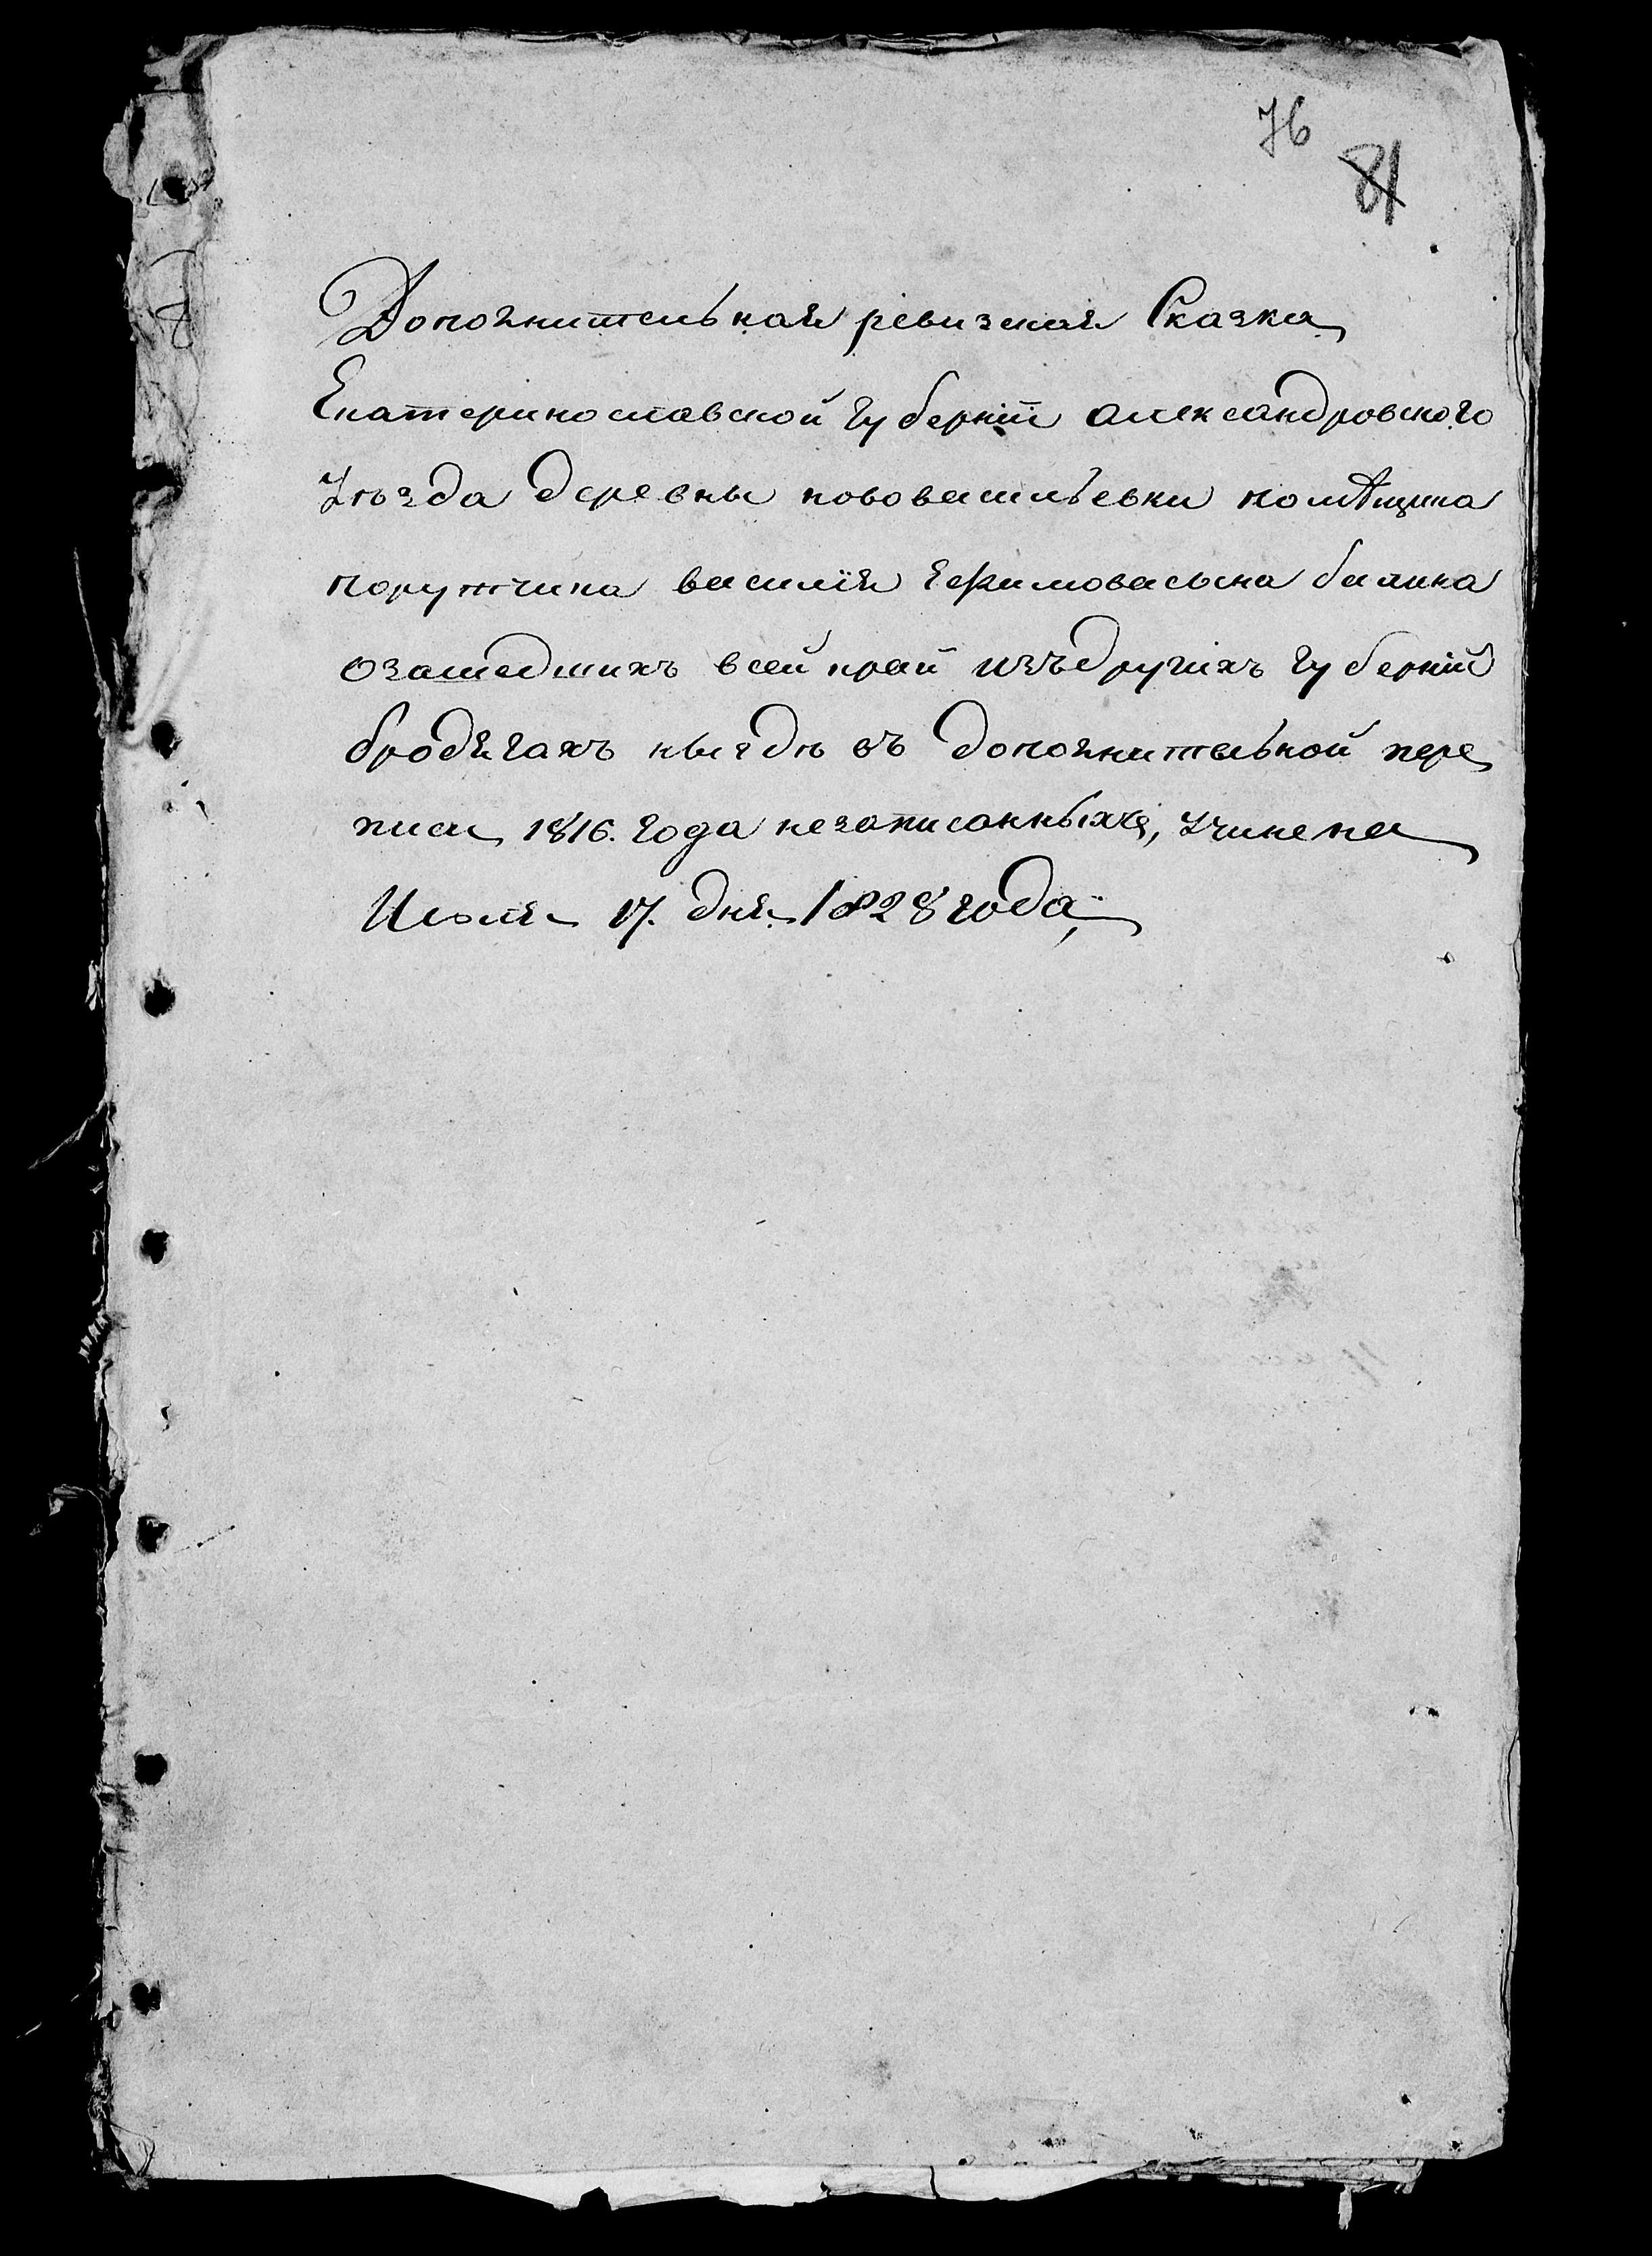 76
81
Дополнительная ревизская Сказка
Екатеринославской губернїи александровского
Уѣзда деревны нововасильевки помѣщика
порутчика василїя ефимовасына
Озашедшихъ всей край изъдругихъ губернїй
бродягахъ нигдѣ въ дополнительной пере
писи 1816. года незаписанныхъ, учинена
Июля 17. дня 1828 года,